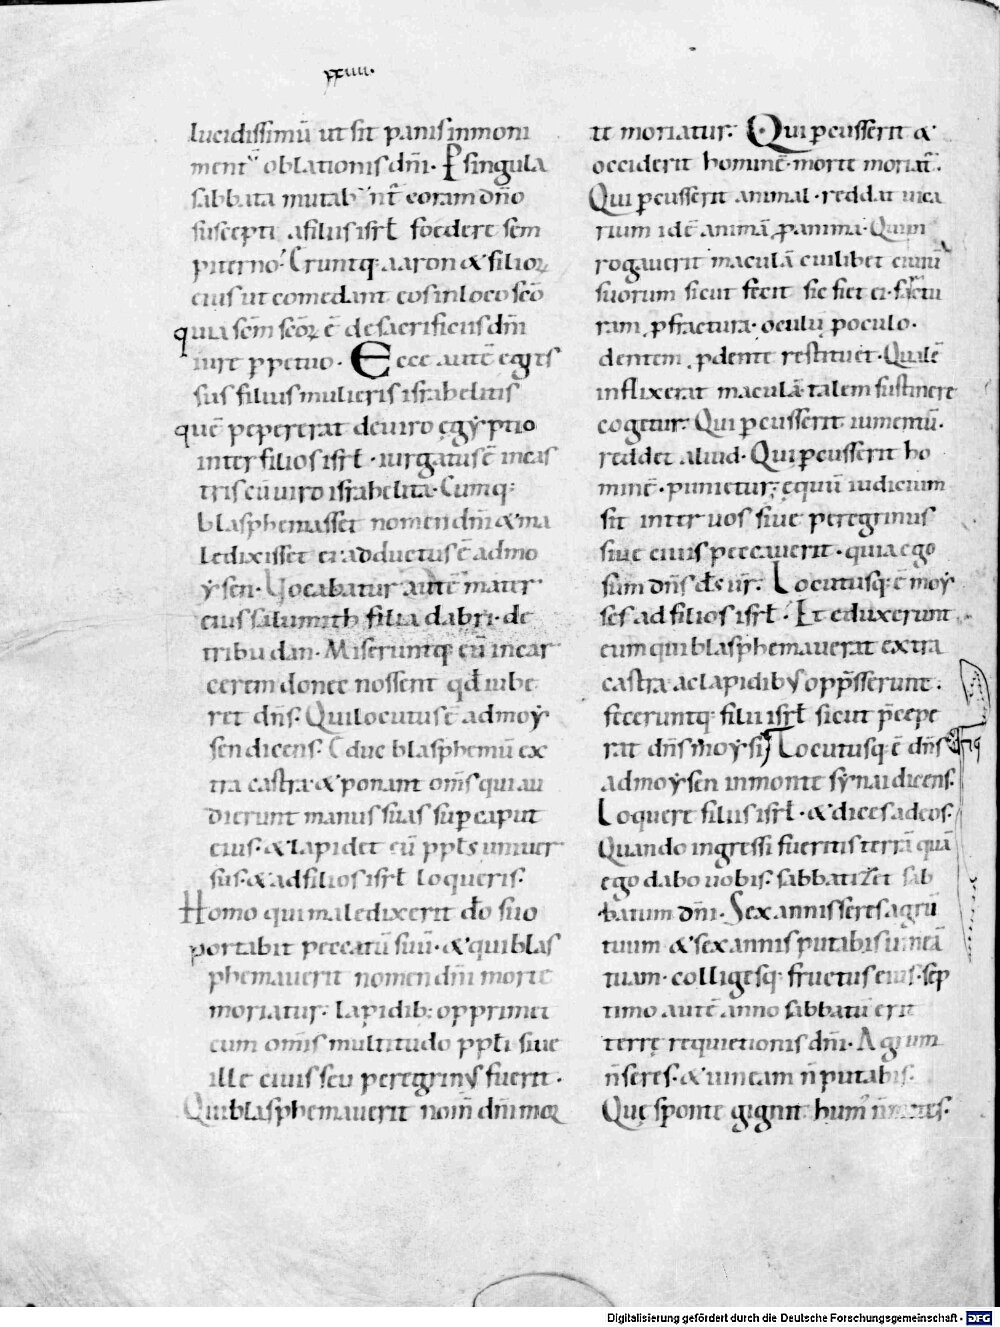 xxiiii.
lucidissimū ut sit panis in moni
mentū oblationis dn̄i. P̱ singula
sabbata mutabunt̄ coram dn̄o
suscepti a filiis isrł foedere sem
piterno. Eruntq; aaron & filioꝝ
eius ut comedant eos in loco sc̄o
quia sc̄m sc̄oꝝ ē de sacrificiis dn̄i
iure ꝑpetuo. Ecce autē egres
sus filius mulieris israhelitis
quē pepererat de uiro ęgyptio
inter filios isrł. iurgatus ē in cas
tris cū uiro israhelita. Cumq;
blasphemasset nomen dn̄i & ma
ledixisset ei adductus ē ad mo
ysen. Uocabatur autē mater
eius salumith filia dabri. de
tribu dan. Miseruntq; eū in car
cerem donec nossent qđ iube
ret dn̄s. Qui locutus ē ad moy
sen dicens. Educ blasphemū ex
tra castra & ponant om̄s qui au
dierunt manus suas super caput
eius. & lapidet eū ppłs uniuer
sus. & ad filios isrł loqueris.
Homo qui maledixerit dō suo
portabit peccatū suū. & qui blas
phemauerit nomen dn̄i morte
moriatur. Lapidib; opprimet
eum om̄is multitudo ppłi siue
ille ciuis seu peregrinus fuerit.
Qui blasphemauerit nom̄ dn̄i mor
te moriatur. Qui ꝑcusserit &
occiderit hominē. morte moriat̄.
Qui ꝑcusserit animal. reddat uica
rium idē animā ꝑ anima. Qui in
rogauerit maculā cuilibet ciuiū
suorum sicut fecit sic fiet ei. fractu
ram ꝑ fractura. oculū ꝑ oculo.
dentem ꝑ dente restituet. Qualē
inflixerat maculā talem sustinere
cogetur. Qui ꝑcusserit iumentū.
reddet aliud. Qui ꝑcusserit ho
minē. punietur; ęquū iudicium
sit inter uos siue peregrinus
siue ciuis peccauerit. quia ego
sum dn̄s ds̄ ur̄. Locutusq; ē moy
ses ad filios isrł. Et eduxerunt
eum qui blasphemauerat extra
castra. ac lapidibus opp̄sserunt.
feceruntq; filii isrł sicut p̄cepe
rat dn̄s moysi. Locutusq; ē dn̄s
ad moysen in monte synai dicens.
Loquere filiis isrł. & dices ad eos.
Quando ingressi fueritis terrā quā
ego dabo uobis. sabbatizet sab
batum dn̄i. Sex annis seres agrū
tuum & sex annis putabis uineā
tuam. colligesq; fructus eius. sep
timo autē anno sabbatū erit
terrę requietionis dn̄i. Agrum
n̄ seres. & uineam n̄ putabis.
Quę sponte gignit humus n̄ metes.
Digitalisierung gefördert durch die Deutsche Forschungsgemeinschaft - DFG